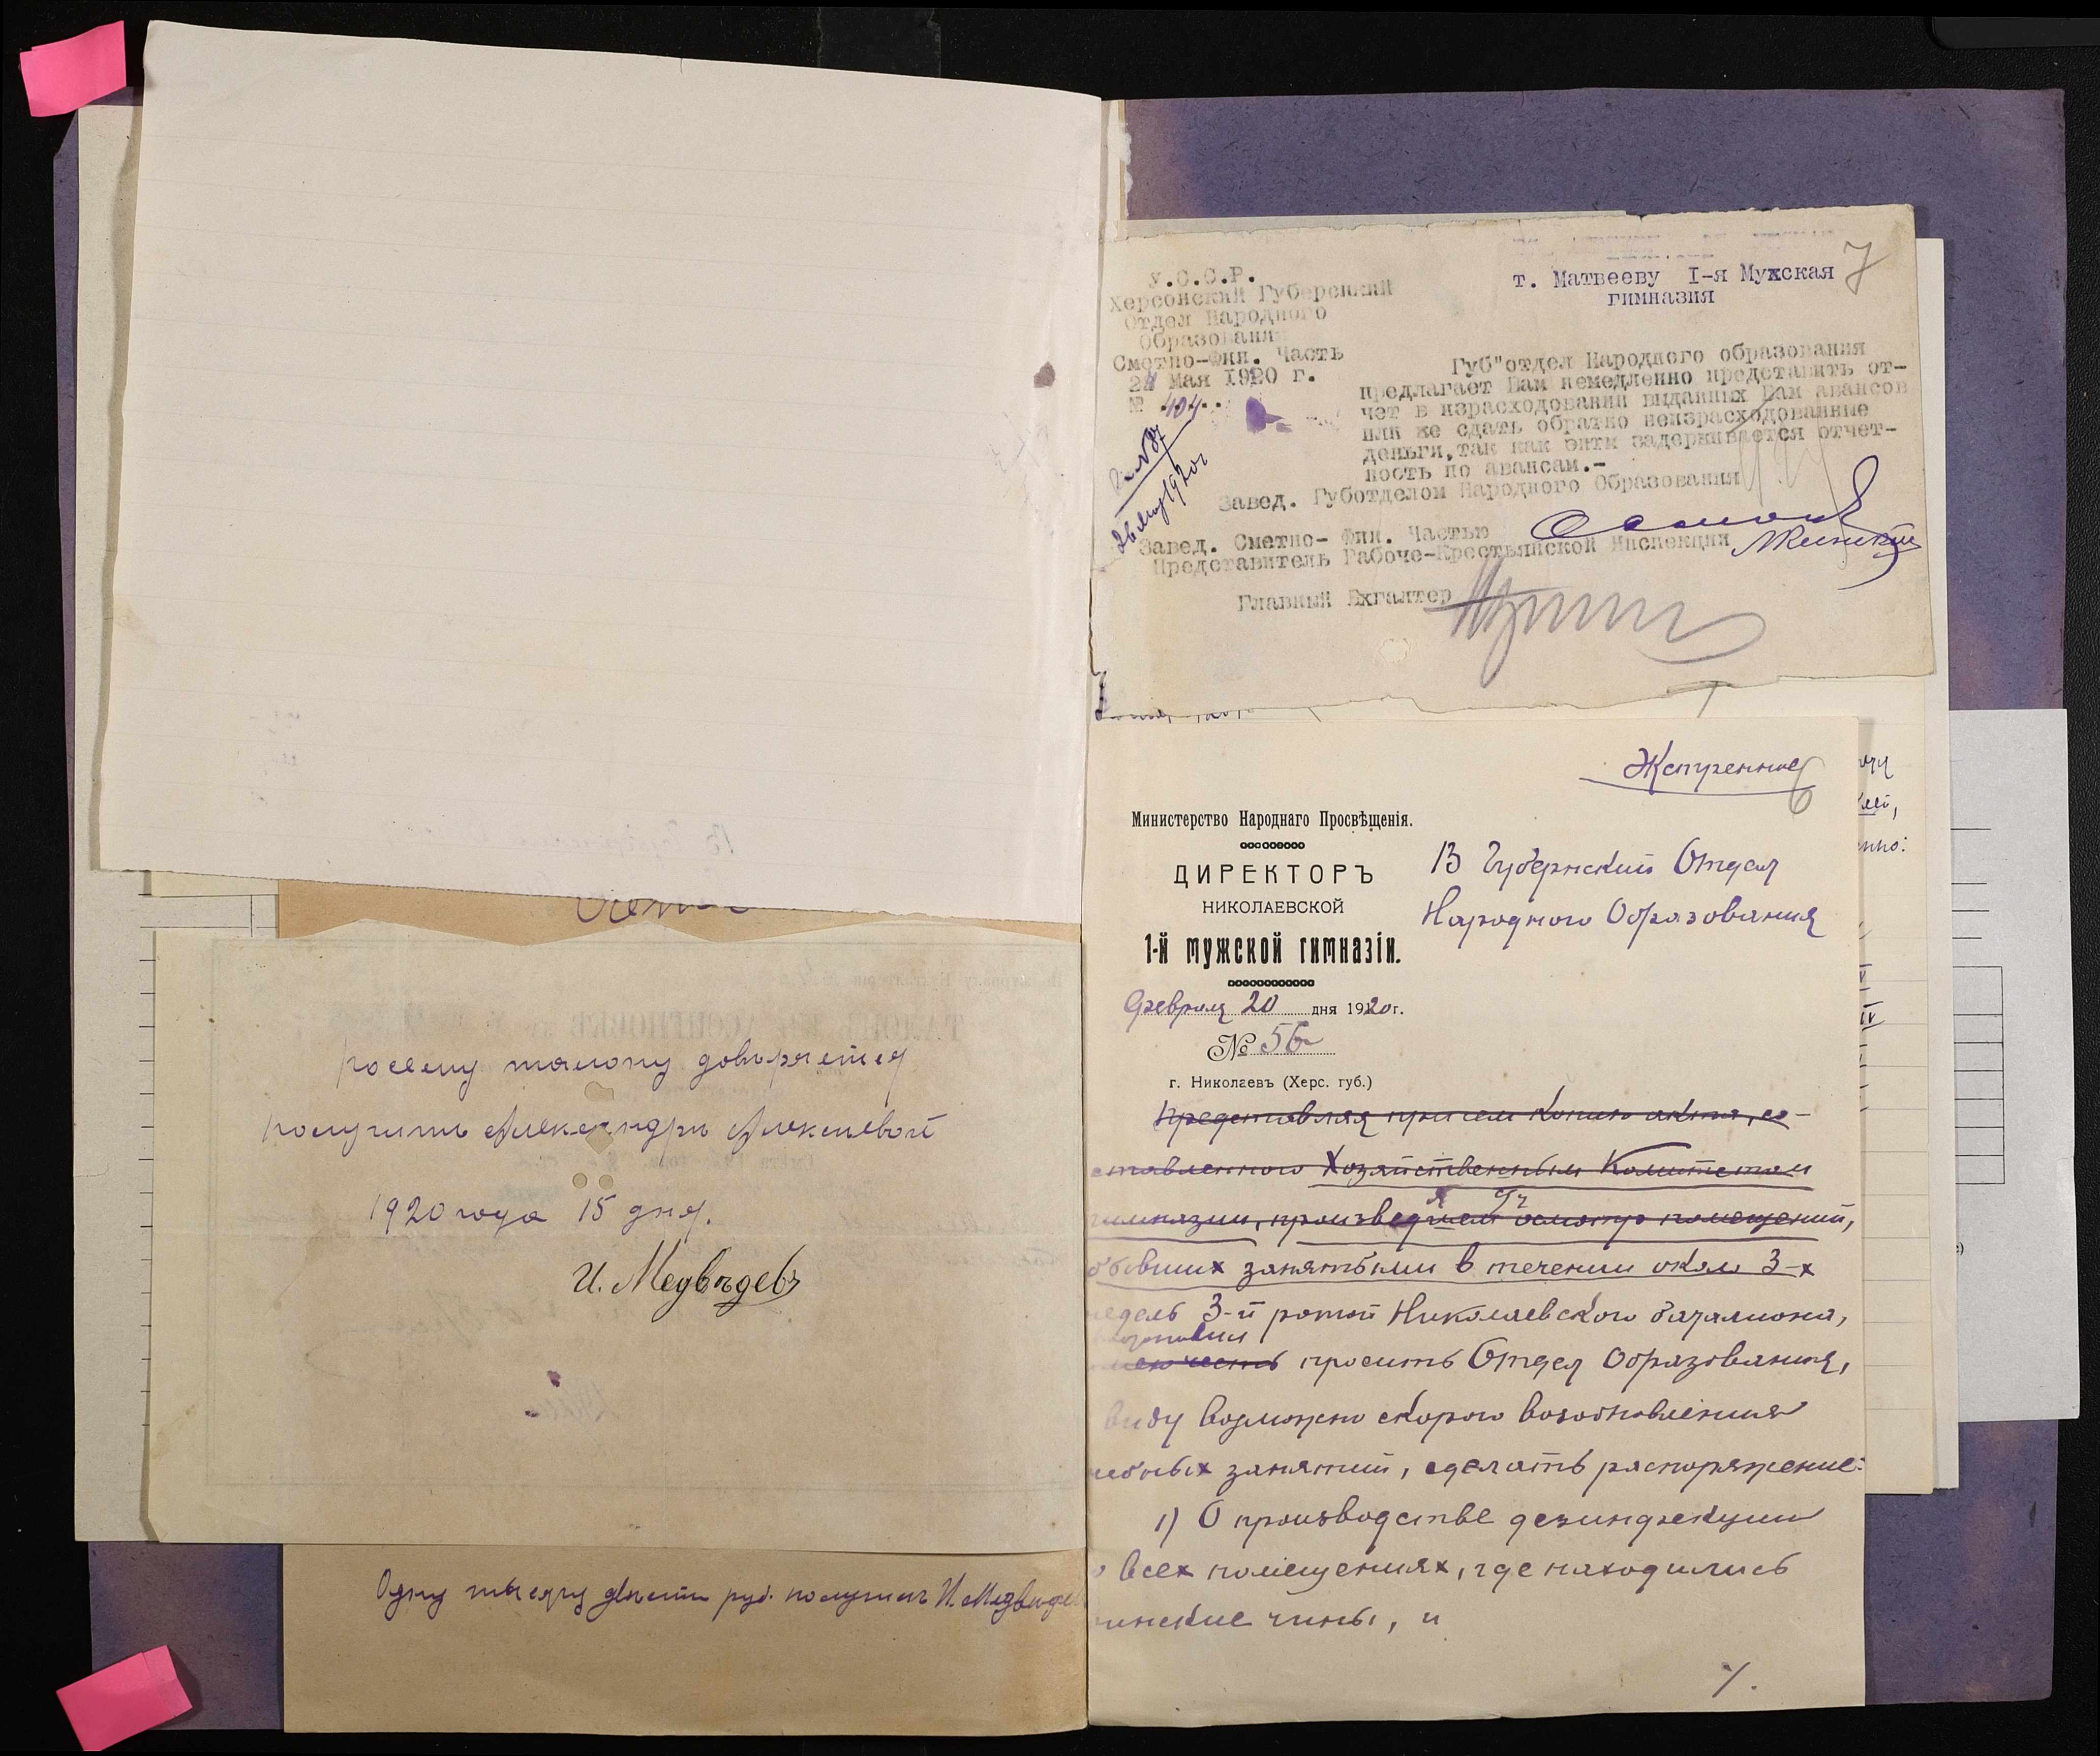 По сему талону доверяется
получить Александре Алексеевой
1920 года 15 дня.
И. Медвѣдевъ
Одну тысячу двести руб. получилъ И. Медведев
7
У.С.С.Р.
Херсонский Губернский
Отдел Народного
Образования
Сметно-Фин. Часть
24 Мая 1920 г.
№ 404..
26 мая 1920 г
т. Матвееву I-я Мужская
гимназия
Губ"отдел Народного образования
предлагает Вам немедленно представить от-
чет в израсходовании выданных Вам авансов
или же сдать обратно неизрасходованные
деньги, так как этим задерживается отчет-
ность по авансам.-
Завед. Губотделом Народного Образования
Завед. Сметно- Фин. Частью
Представитель Рабоче-Крестьянской Инспекции
Главный Бхгалтер
Экстренное
6
Министерство Народнаго Просвѣщенія.
ДИРЕКТОРЪ
НИКОЛАЕВСКОЙ
1-й мужской гимназіи.
Февраля 20 дня 1920 г.
№ 56
г. Николаевъ (Херс. губ.)
В Губернский Отдел
Народного Образования
Представляя при сем копию акта, со-
ставленного Хозяйственным Комитетом
гимназии, произведшем осмотр помещений,
бывших занятыми в течении около 3-х
недель 3-й ротой Николаевского баталиона,
имею честь просить Отдел Образования,
виду возможно скорого возобновления
учебных занятий, сделать распоряжение:
1) О производстве дезинфекции
во всех помещениях, где находились
воинские чины, и